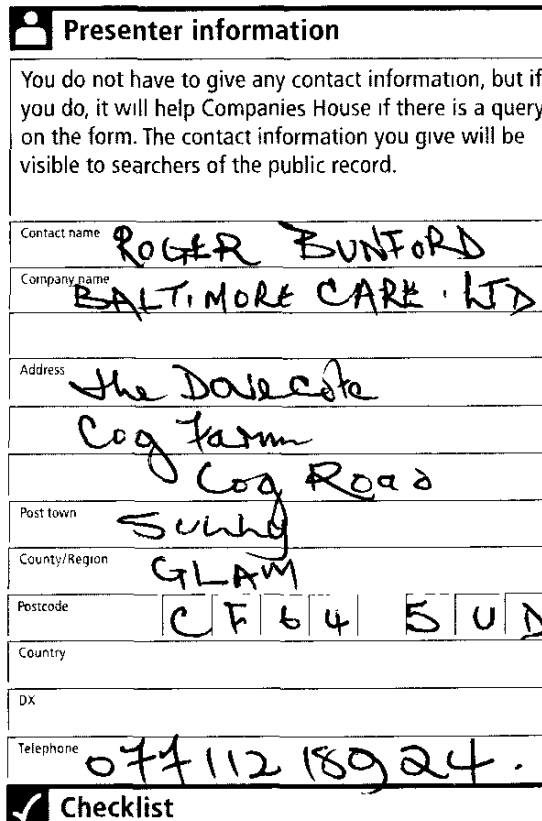 Presenter information
You do not have to give any contact information, but if
you do, it will help Companies House if there is a query
on the form. The contact information you give will be
visible to searchers of the public record.
Contact name ROGER BUNFORD
Company name BALTIMORE CARE . LTD
Address The Dovecote
Cog Farm
Cog Road
Post town Sully
County/Region GLAM
Postcode CF64 5UD
Country
DX
Telephone 077112 18924.
Checklist